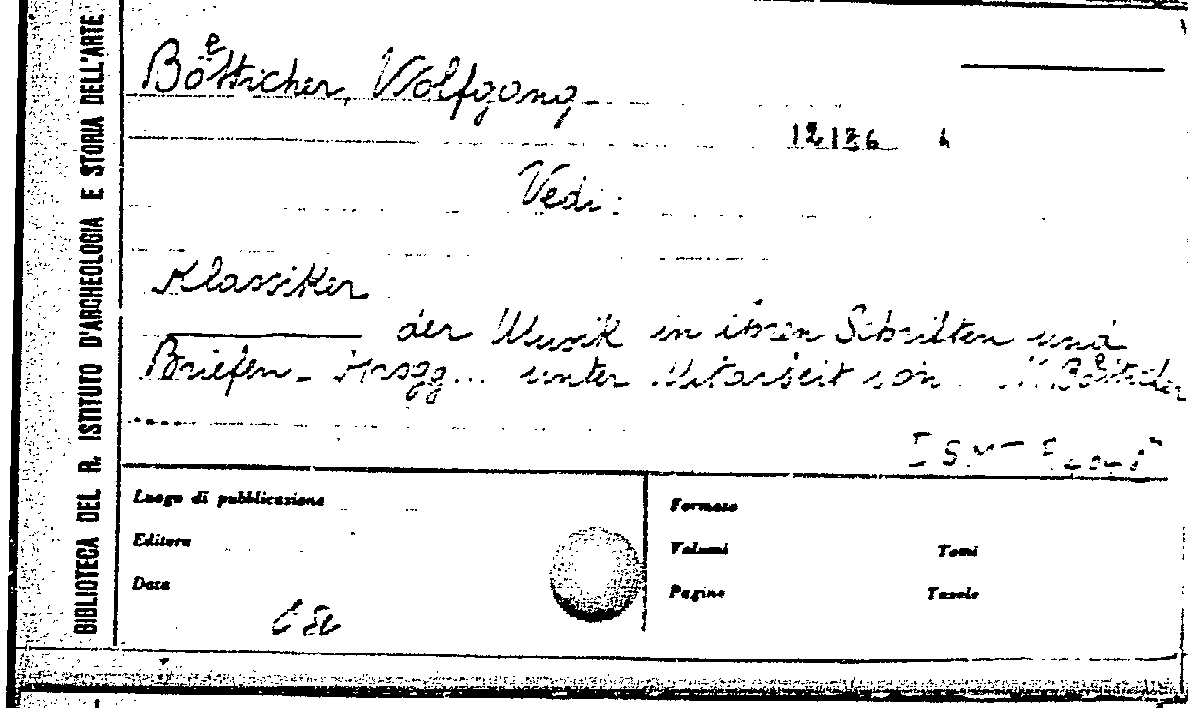 BIBLIOTECA DEL R. ISTITUTO D'ARCHEOLOGIA E STORIA DELL'ARTE
Böetticher, Wolfgang
12136
Vedi:
Klassiker
der Musik in ihren Schriften und
Briefen - Hrsgg... unter Mitarbeit von W. Böetticher
Luogo di pubblicazione
Editore
Data
Formato
Volumi Tomi
Pagine Tavole